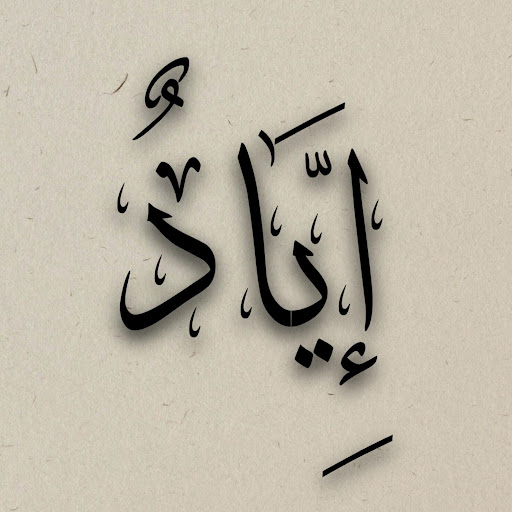 إِيَّادٌ